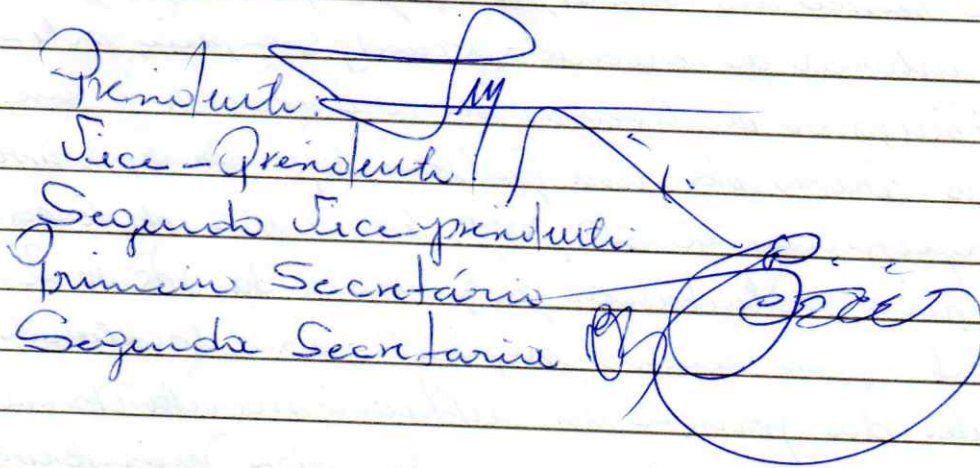 Presidente:
Vice-Presidente
Segundo Vice-presidente:
Primeiro Secretário
Segunda Secretaria